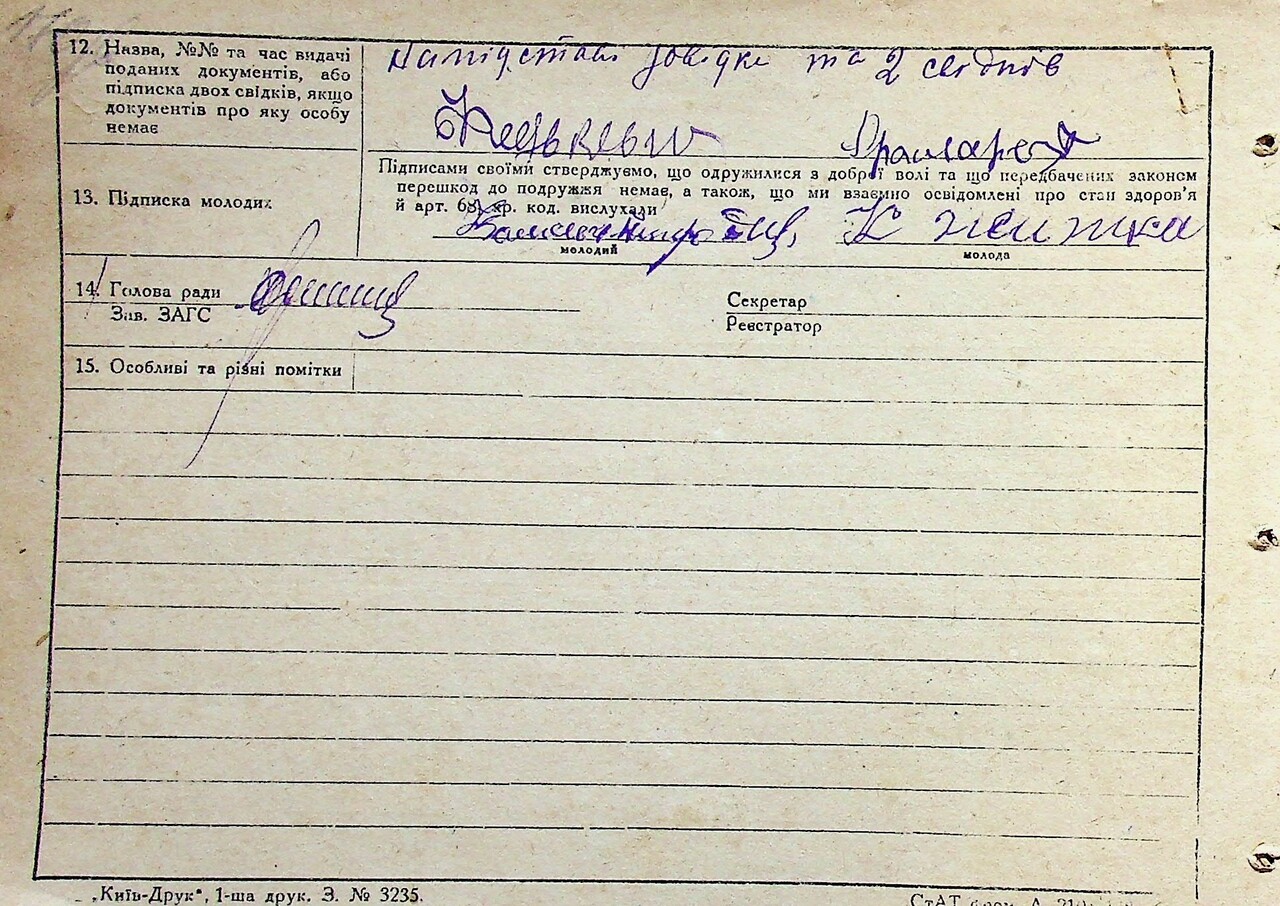 12. Назва, №№ та час видачі поданих документів, або підписка двох свідків, якщо документів про яку особу немає
На підставі довідки та 2 свідків
Підписами своїми стверджуємо, що одружилися з доброї волі та що передбачених законом
перешкод до подружжя немає, а також, що ми взаємно освідомлені про стан здоров'я
й арт. 68 кр. код. вислухали
13. Підписка молодих
молодий
молода
14. Голова ради
Зав. ЗАГС
Секретар
Реєстратор
15. Особливі та різні помітки
„Київ-Друк", 1-ша друк. З. № 3235.